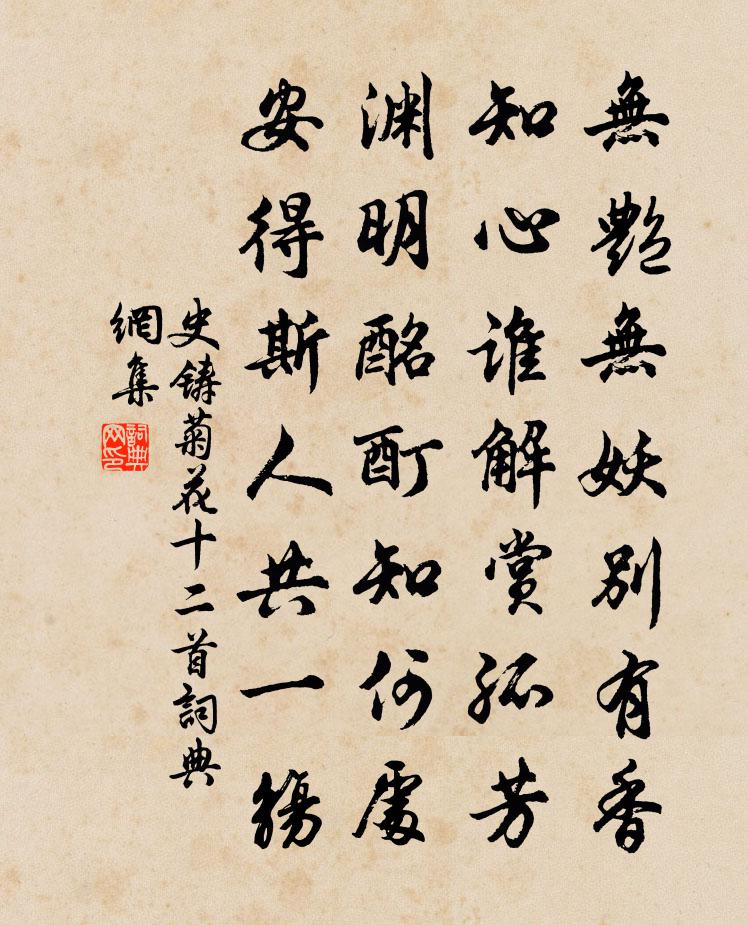 無艷無妖別有香
知心誰解賞孤芳
淵明酩酊知何處
安得斯人共一觴
史鑄菊花十二首詞典
網集
詞典
网印